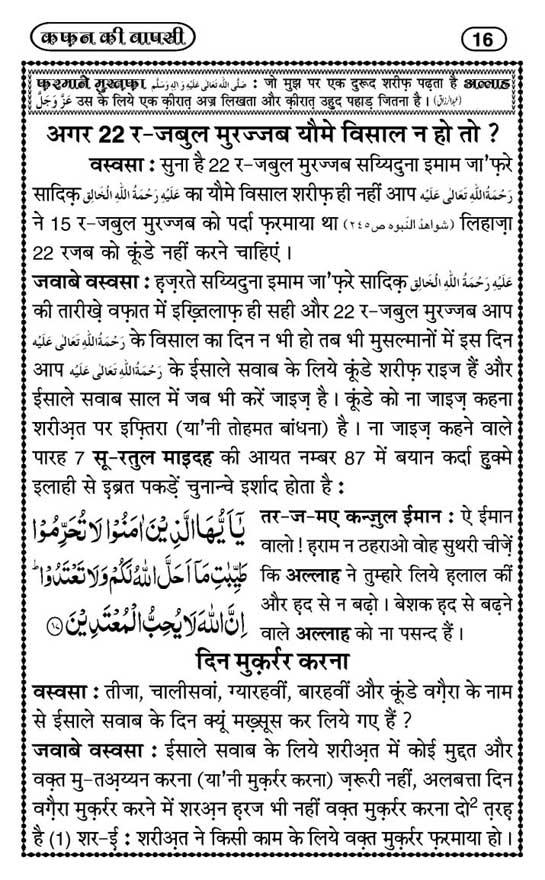 कफ़न की वापसी
16
फ़रमाने मुस्तफ़ा صَلَّى اللهُ تَعَالٰى عَلَيْهِ وَاٰلِهٖ وَسَلَّم : जो मुझ पर एक दुरूद शरीफ़ पढ़ता है अल्लाह
عَزَّوَجَلَّ उस के लिये एक क़ीरात़ अज्र लिखता और क़ीरात़ उहुद पहाड़ जितना है । (عبدالرزاق)
अगर 22 र-जबुल मुरज्जब यौमे विसाल न हो तो ?
वस्वसा : सुना है 22 र-जबुल मुरज्जब सय्यिदुना इमाम जा'फ़रे
सादिक़ عَلَيْهِ رَحْمَةُ اللهِ الْخَالِق का यौमे विसाल शरीफ़ ही नहीं आप رَحْمَةُ اللهِ تَعَالٰى عَلَيْه
ने 15 र-जबुल मुरज्जब को पर्दा फ़रमाया था (شواهدُ النبوه ص٢٤٥) लिहाज़ा
22 रजब को कूंडे नहीं करने चाहिएं ।
जवाबे वस्वसा : ह़ज़रते सय्यिदुना इमाम जा'फ़रे सादिक़ عَلَيْهِ رَحْمَةُ اللهِ الْخَالِق
की तारीख़े वफ़ात में इख़्तिलाफ़ ही सही और 22 र-जबुल मुरज्जब आप
رَحْمَةُ اللهِ تَعَالٰى عَلَيْه के विसाल का दिन न भी हो तब भी मुसल्मानों में इस दिन
आप رَحْمَةُ اللهِ تَعَالٰى عَلَيْه के ईसाले सवाब के लिये कूंडे शरीफ़ राइज हैं और
ईसाले सवाब साल में जब भी करें जाइज़ है । कूंडे को ना जाइज़ कहना
शरीअ़त पर इफ़्तिरा (या'नी तोहमत बांधना) है । ना जाइज़ कहने वाले
पारह 7 सू-रतुल माइदह की आयत नम्बर 87 में बयान कर्दा हुक्मे
इलाही से इब्रत पकड़ें चुनान्चे इर्शाद होता है :
يٰۤاَيُّهَا الَّذِيْنَ اٰمَنُوْا لَا تُحَرِّمُوْا
طَيِّبٰتِ مَاۤ اَحَلَّ اللهُ لَكُمْ وَلَا تَعْتَدُوْا ؕ
اِنَّ اللهَ لَا يُحِبُّ الْمُعْتَدِيْنَ ﴿٨٧﴾
तर-ज-मए कन्ज़ुल ईमान : ऐ ईमान
वालो ! ह़राम न ठहराओ वोह सुथरी चीज़ें
कि अल्लाह ने तुम्हारे लिये ह़लाल कीं
और ह़द से न बढ़ो । बेशक ह़द से बढ़ने
वाले अल्लाह को ना पसन्द हैं ।
दिन मुक़र्रर करना
वस्वसा : तीजा, चालीसवां, ग्यारहवीं, बारहवीं और कूंडे वग़ैरा के नाम
से ईसाले सवाब के दिन क्यूं मख़्सूस कर लिये गए हैं ?
जवाबे वस्वसा : ईसाले सवाब के लिये शरीअ़त में कोई मुद्दत और
वक़्त मु-तअ़य्यन करना (या'नी मुक़र्रर करना) ज़रूरी नहीं, अलबत्ता दिन
वग़ैरा मुक़र्रर करने में शरअ़न हरज भी नहीं वक़्त मुक़र्रर करना दो² त़रह़
है (1) शर-ई : शरीअ़त ने किसी काम के लिये वक़्त मुक़र्रर फ़रमाया हो ।